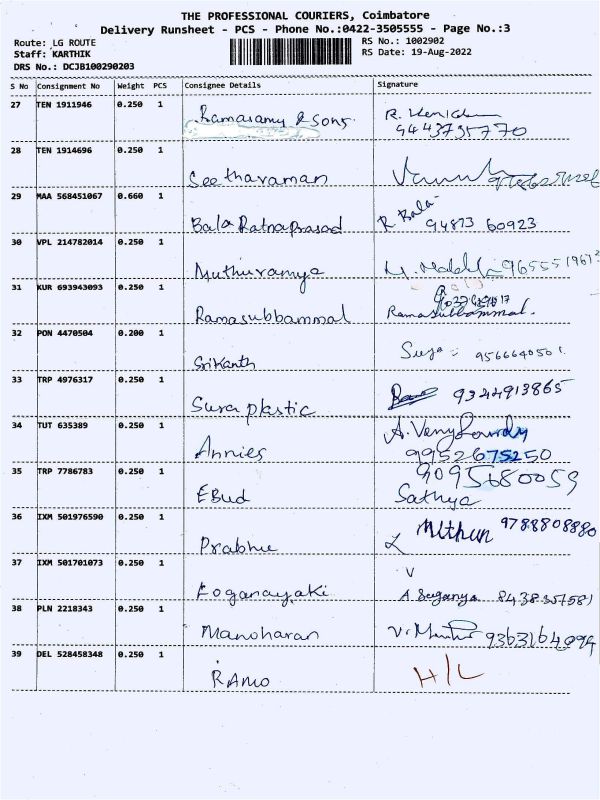 THE PROFESSIONAL COURIERS, Coimbatore
Delivery Runsheet - PCS - Phone No.:0422-3505555 - Page No.:3
Route: LG ROUTE
Staff: KARTHIK
DRS No.: DCJB100290203
RS No.: 1002902
RS Date: 19-Aug-2022
S No Consignment No Weight PCS Consignee Details Signature
27 TEN 1911946 0.250 1
Ramasamy & Sons.
9443735770
28 TEN 1914696 0.250 1
Seetharaman
29 MAA 568451067 0.660 1
Bala RatnaPrasad R Bala 94873 60923
30 VPL 214782014 0.250 1
Muthuramya
31 KUR 693943093 0.250 1
Ramasubbammal Ramasubbammal.
32 PON 4470504 0.200 1
Srikanth
33 TRP 4976317 0.250 1
Sura plastic 9344913865
34 TUT 635389 0.250 1
Annies 9995267 5250
35 TRP 7786783 0.250 1
9095680059
EBud Sathya
36 IXM 501976590 0.250 1
Prabhu Mithun 9788808880
37 IXM 501701073 0.250 1
Loganayaki A Suganya 8438357581
38 PLN 2218343 0.250 1
Manoharan 9363164094
39 DEL 528458348 0.250 1
RAMO H/L